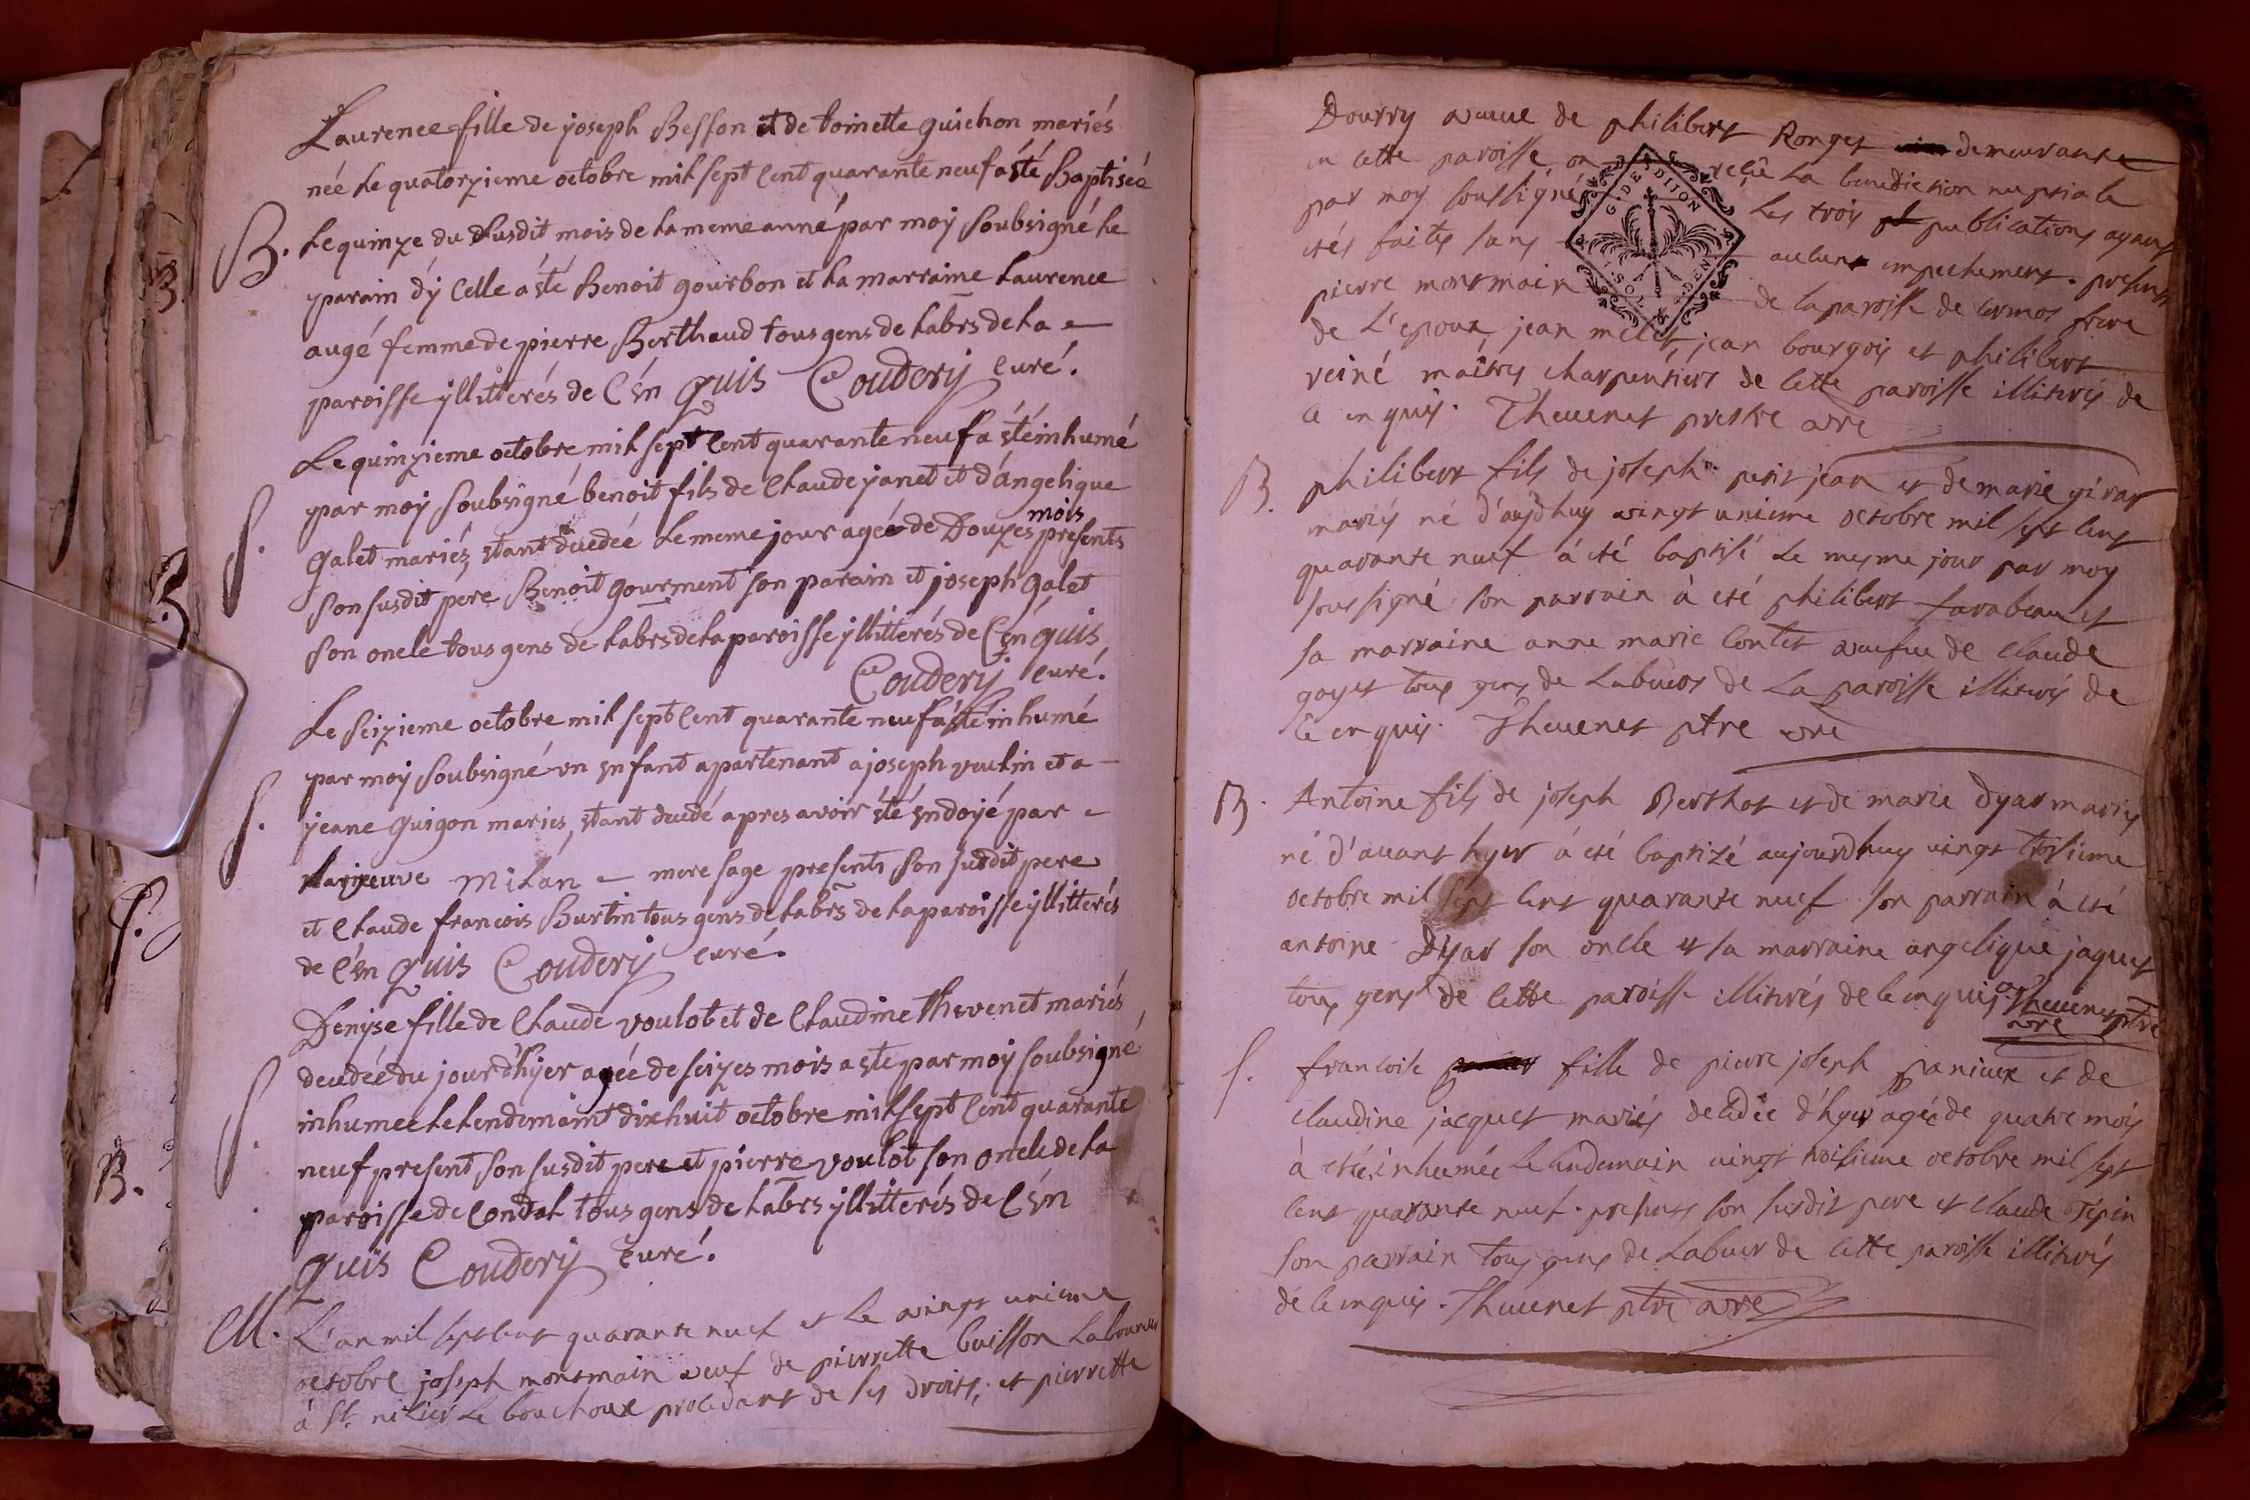 Laurence fille de joseph Besson et de toinette guichon mariés
née le quatorzieme octobre mil sept cent quarante neuf a êté Baptisée
B. le quinze du susdit mois de la meme anné par moy soubsigné le
parain d'ÿ celle a êté Benoit gourbon et la marraine laurence
augé femme de pierre Berthaud tous gens de labrs de la
paroisse ÿllitterés de C'en quis Coudery curé.
Le quinzieme octobre mil sept cent quarante neuf a êté inhumé
par moy soubsigné benoit fils de Claude janet et d'angelique
mois
S. galet mariéz êtant decedée le meme jour ageé de Douzes presents
son susdit pere Benoit gourment son parain et joseph galet
son oncle tous gens de labrs de la paroisse ÿllitterés de C'en quis
Coudery curé.
Le seizieme octobre mil sept cent quarante neuf a êté inhumé
par moy soubsigné un enfant apartenant a joseph vuelin et a
S. jeane guigon maries, êtant decedé apres avoir êté endoyé par
veuve Milan mere sage presents son susdit pere
et Claude francois Burtin tous gens de labrs de la paroisse ÿllitterés
de C'en quis Coudery curé.
Denyse fille de Claude voulot et de Claudine thevenet mariés
decedée du jour d'hÿer agée de seizes mois a eté par moy soubsigné
S. inhumee le lendemaint dixhuit octobre mil sept cent quarante
neuf present son susdit pere et pierre voulot son oncle de la
paroisse de Condal tous gens de labrs ÿllitterés de C'en
quis Coudery curé.
M. L'an mil sept cent quarante neuf et le vingt unieme
octobre joseph montmain veuf de pierrette buisson laboureur
à st. le bouchoux procedant de ses droits, et pierrette
Dourry veuve de philibert Ronget demeurante
en cette paroisse on reçû la benediction nuptiale
par moy soussigné les trois publications ayant
etés faites sans aucune empechement. presents
pierre montmain de la paroisse de cormos frere
de L'epoux, jean melet, jean bourgois et philibert
reiné maîtres charpentiers de cette paroisse illiterés de
ce enquis. Thevenet prestre vre
B. philibert fils de joseph petit jean et de marie girar
mariés né d'aujdhuy vingt unieme octobre mil sept cent
quarante neuf à eté baptisé le mesme jour par moy
soussigné son parrain à eté philibert farabeau et
sa marraine anne marie contet veufve de claude
goyet tous gens de labieur de La paroisse illiterés de
ce enquis. Thevenet ptre vre
B. Antoine fils de joseph Berthot et de marie Dyar mariés
né d'avant hyer à eté baptizé aujourdhuy vingt troisieme
octobre mil sept cent quarante neuf son parrain à eté
antoine Dyar son oncle et sa marraine angelique jaquet
tous gens de cette paroisse illiterés de ce enquis. Thevenet ptre
vre
S. francoise fille de pierre joseph panieux et de
claudine jacquet mariés decedée d'hyer agée de quatre mois
à eté inhumée le lendemain vingt troisieme octobre mil sept
cent quarante neuf. presents son susdit pere et claude Tépin
son parrain tous gens de labeur de cette paroisse illiterés
de ce enquis. Thevenet ptre vre
G. DE DIJON